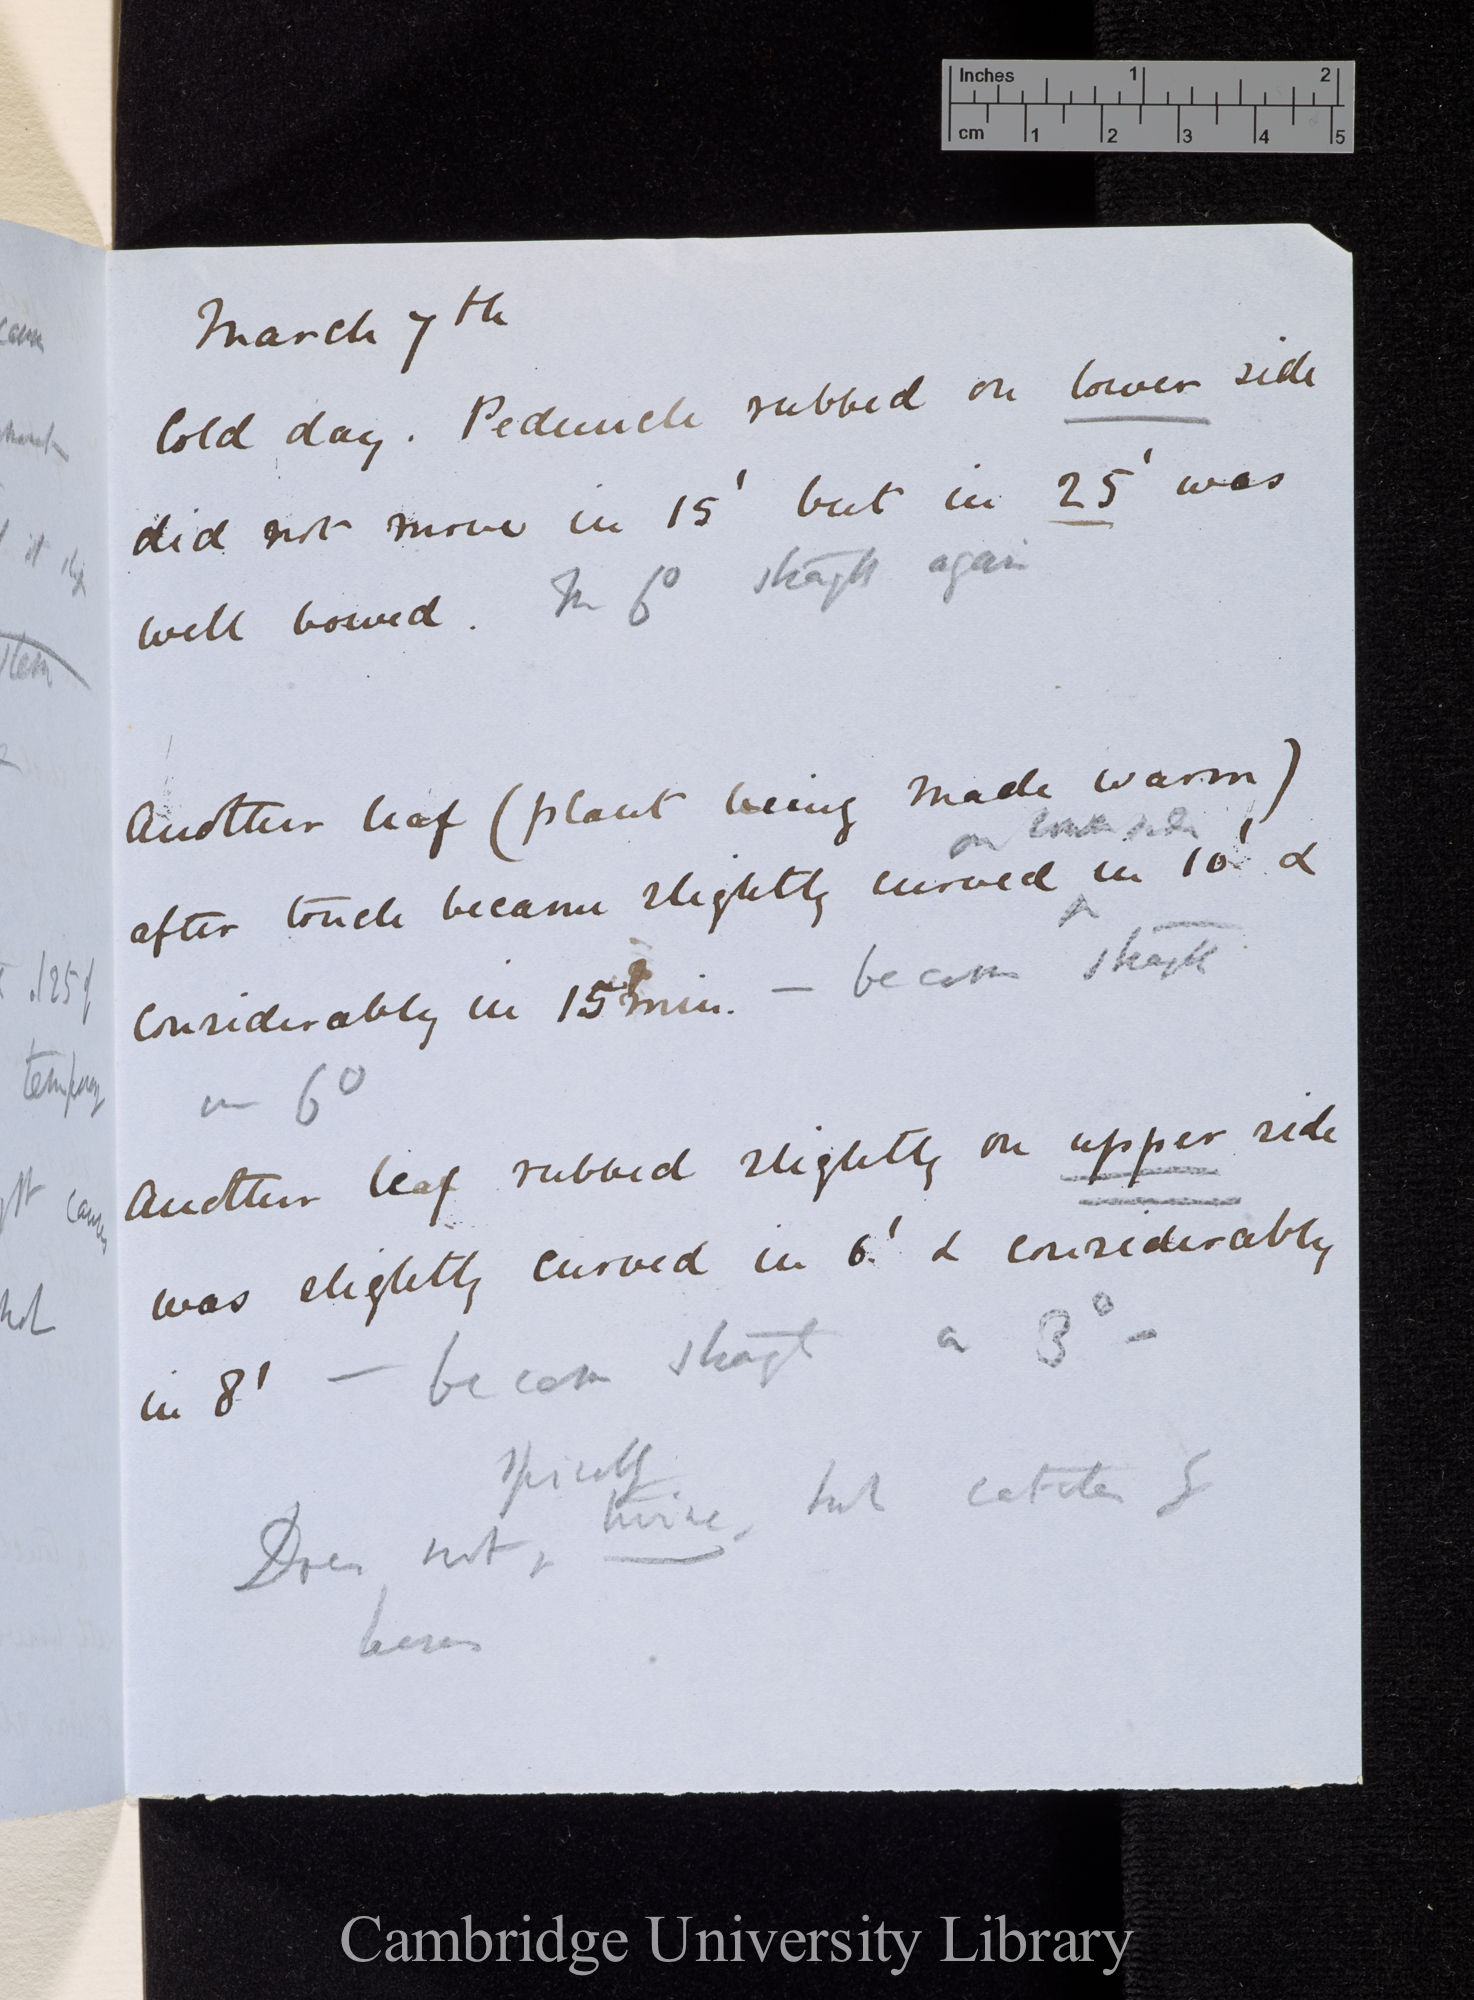 Inches 1 2
cm 1 2 3 4 5
March 7th
Cold day. Peduncle rubbed on lower side
did not move in 15' but in 25' was
well bowed. In 6° straight again
Another leaf (plant being made warm)
on lower side
after touch became slightly curved in 10' &
considerably in 15 min. — became straight
in 6°
Another leaf rubbed slightly on upper side
was slightly curved in 6' & considerably
in 8' — became straight in 3° –
spirally
Does not, twine, but catches by
.125 of
cause
not
Cambridge University Library